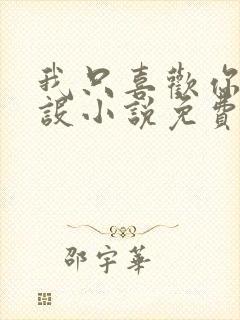 我只喜歡你
設小說免費
邵宇華